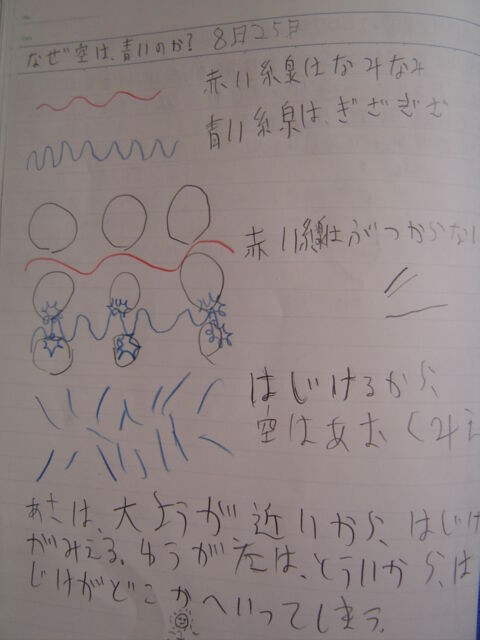 なぜ空は、青いのか? 8日25日
赤い線はなみなみ
青い線は、ぎざぎざ
赤い線はぶつからない
はじけるから、
空はあおくみえ
あさは、大ようが近いから、はじけ
がみえる、ゆうが方は、とういから、は
じけがどこかへいってしまう。